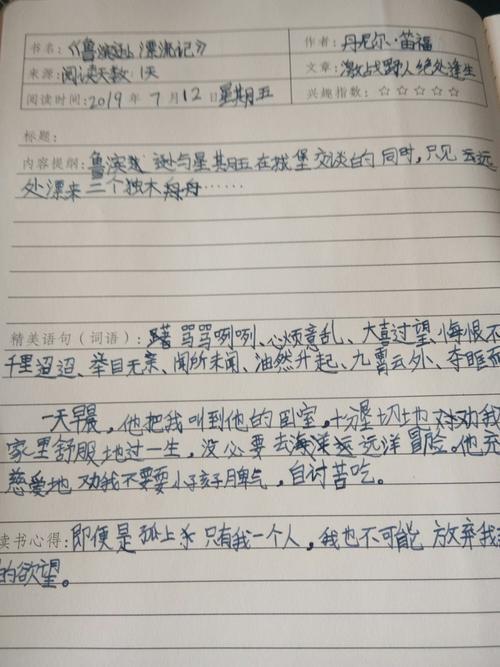 书名:《鲁滨逊漂流记》 作者:丹尼尔·笛福
来源:阅读天数:1天 文章:激战野人绝处逢生
阅读时间:2019年7月12日星期五 兴趣指数:☆☆☆☆☆
标题:
内容提纲:鲁滨逊与星期五在城堡交谈的同时,只见远
处漂来三个独木舟……
精美语句(词语):骂骂咧咧、心烦意乱、大喜过望、悔恨不
千里迢迢、举目无亲、闻所未闻、油然升起、九霄云外、夺眶
一天早晨,他把我叫到他的卧室,十分恳切地对劝我
家里舒服地过一生,没必要去海洋远洋冒险。他充
慈爱地劝我不要耍小孩子脾气,自讨苦吃。
读书心得:即便是孤上只有我一个人,我也不可能放弃我
的欲望。